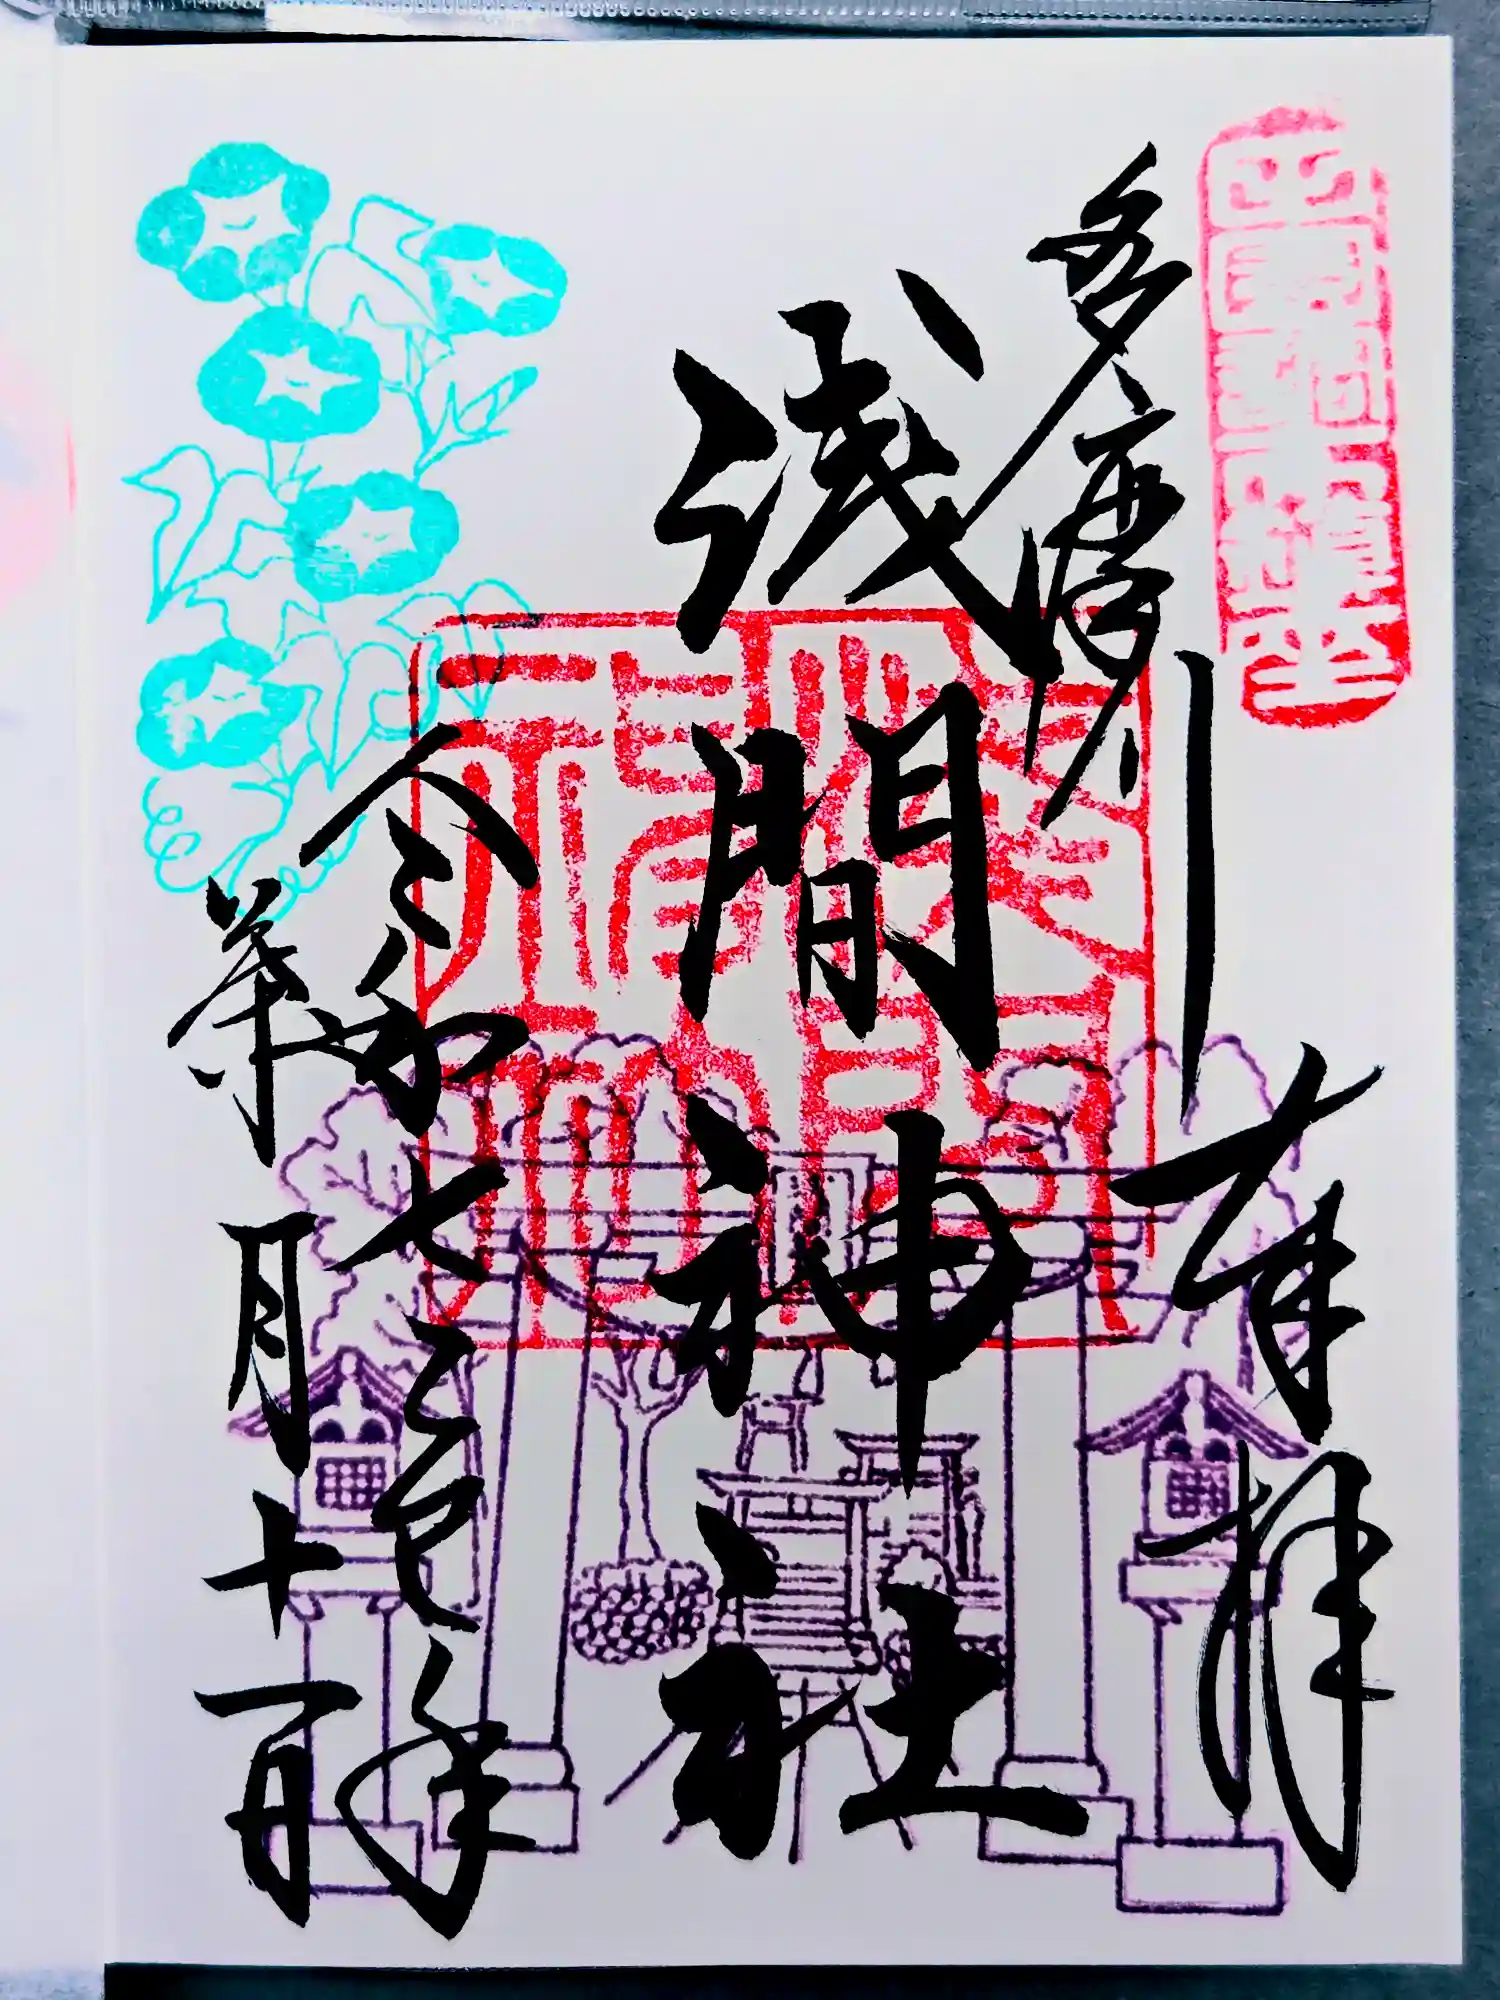 奉拝
多摩川
浅間神社
令和七乙巳年
葉月十一日